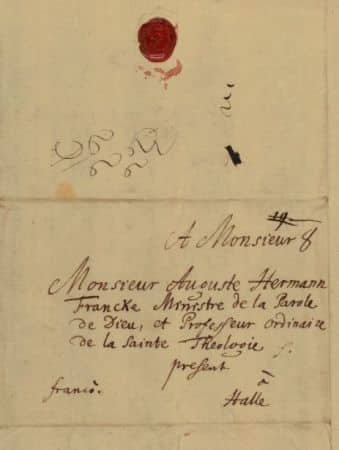 19
A Monsieur
Monsieur Auguste Hermann
Francke Ministre de la Parole
de Dieu, et Professeur ordinaire
de la Sainte Theologie
present
à
franco. Halle